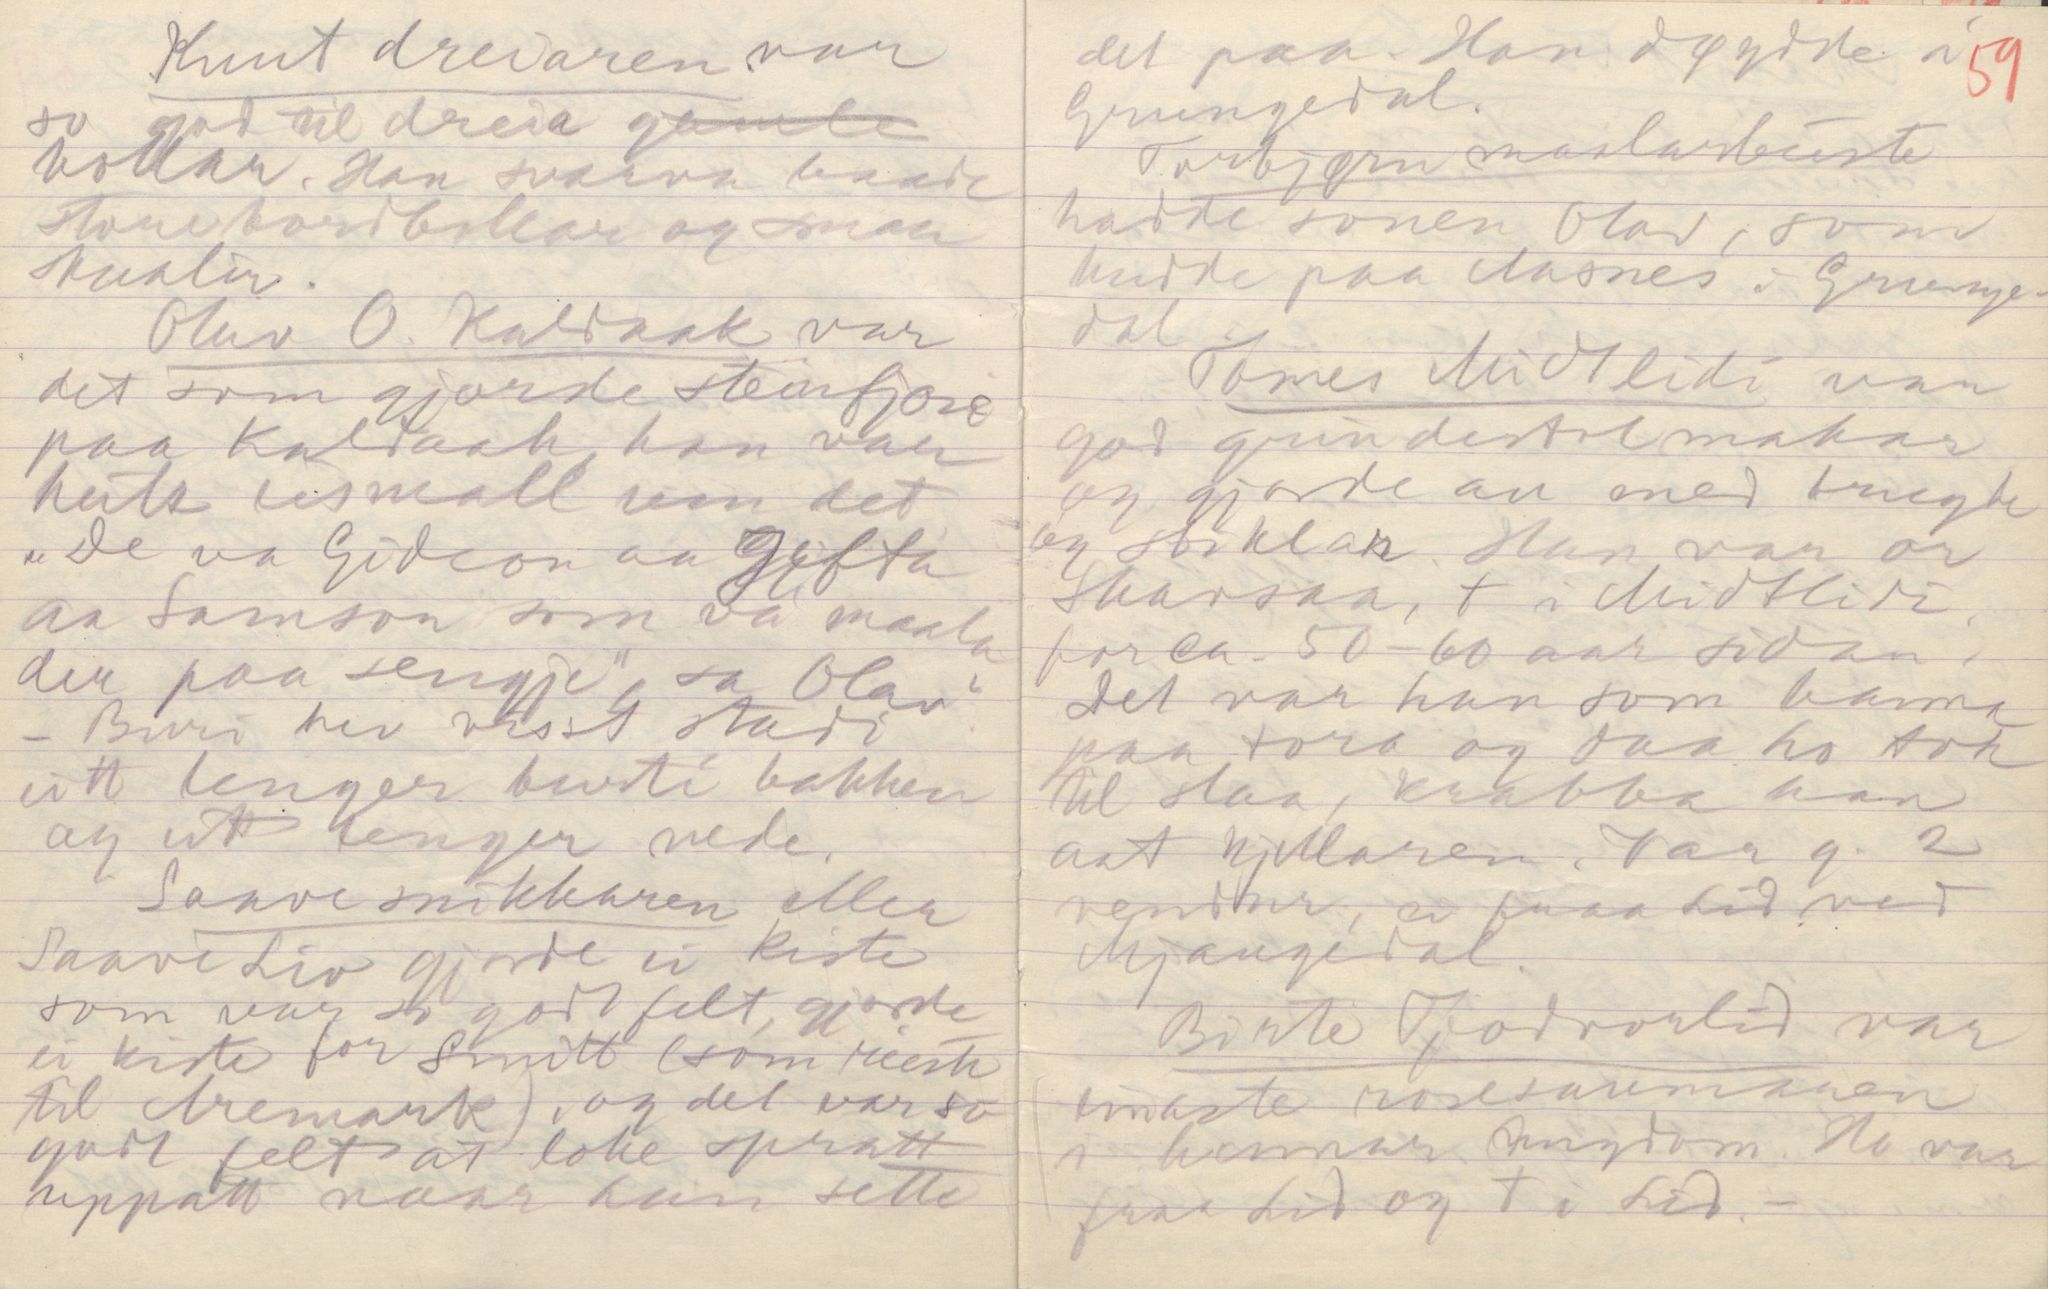 Knut dreiaren var
so god til dreia gamle
bollar. Han svarva baade
store bordbollar og smaa
skaalir.
Olav O. Kaldaak var
det som gjorde steinfjose
paa Kaldaak, han var
um det
"De va Gideon aa Jefta
aa Samson som va maala
der paa sengje", sa Olav.
- Buri hev visst stadi
itt lenger burti bakken
og itt lenger nede.
Saave snikkaren eller
Saave Liv gjorde ei kiste
som var so godt felt, gjorde
ei kiste for Smitt (som reiste
til Aremark), og det var so
godt felt at loke spratt
uppatt naar han sette
59
det paa. Han døydde i
Grungedal.
Torbjørn maalarbøiste
hadde sonen Olav, som
budde paa Aasnes i Grunge-
dal
Tomes Midtlidi var
god grindestolmakar
og gjorde au med brugde
og stiklar. Han var or
Skarsaa, † i Midtlidi,
for ca. 50-60 aar sidan.
Det var han som banna
paa tora og daa ho tok
til slaa, krabba han
aat kjellaren. Var g. 2
vendur, ei fraa Lid ved
Mjaugedal.
Birte Tjodvorlid var
rosesaumaren
i hennar ungdom. Ho var
fraa Lid og † i Lid. -